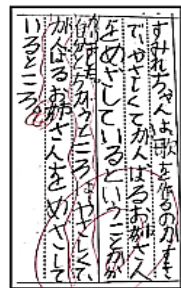 すみれちゃんは歌を作るのがすきで、やさしくてがんばるお姉さん
をめざしているということが
かいました。
自分とちがうところはやさしくて、
がんばるお姉さんをめざして
いるところ